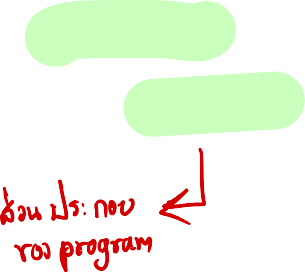 ส่วน ประกอบ
ของ program